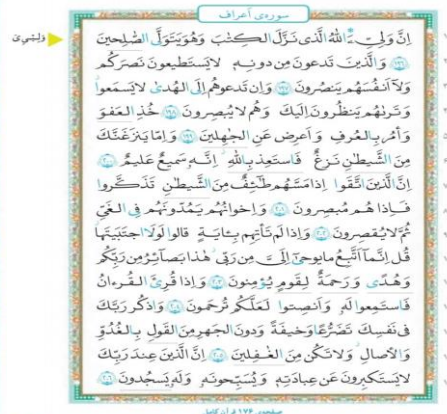 سوره‌ی أعراف
وَلِيِّيَ
اِنَّ وَلِيِّ‍ۧىَ اللّٰهُ الَّذى نَزَّلَ الكِتٰبَ وَهُوَ يَتَوَلَّى الصّٰلِحينَ
﴿١٩٦﴾ وَالَّذينَ تَدعونَ مِن دونِهِ لا يَستَطيعونَ نَصرَكُم
وَلا اَنفُسَهُم يَنصُرونَ ﴿١٩٧﴾ وَاِن تَدعوهُم اِلَى الهُدىٰ لا يَسمَعوا
وَتَرىٰهُم يَنظُرونَ اِلَيكَ وَهُم لا يُبصِرونَ ﴿١٩٨﴾ خُذِ العَفوَ
وَأمُر بِالعُرفِ وَ اَعرِض عَنِ الجٰهِلينَ ﴿١٩٩﴾ وَ اِمّا يَنزَغَنَّكَ
مِنَ الشَّيطٰنِ نَزغٌ فَاستَعِذ بِاللّٰهِ اِنَّهُ سَميعٌ عَليمٌ ﴿٢٠٠﴾
اِنَّ الَّذينَ اتَّقَوا اِذا مَسَّهُم طٰئِفٌ مِنَ الشَّيطٰنِ تَذَكَّروا
فَاِذا هُم مُبصِرونَ ﴿٢٠١﴾ وَ اِخوانُهُم يَمُدّونَهُم فِى الغَىِّ
ثُمَّ لا يُقصِرونَ ﴿٢٠٢﴾ وَ اِذا لَم تَأتِهِم بِـٔايَةٍ قالوا لَولَا اجتَبَيتَها
قُل اِنَّما اَتَّبِعُ ما يوحىٰ اِلَىَّ مِن رَبّى هٰذا بَصائِرُ مِن رَبِّكُم
وَ هُدًى وَ رَحمَةٌ لِقَومٍ يُؤمِنونَ ﴿٢٠٣﴾ وَ اِذا قُرِئَ القُرءانُ
فَاستَمِعوا لَهُ وَ اَنصِتوا لَعَلَّكُم تُرحَمونَ ﴿٢٠٤﴾ وَاذكُر رَبَّكَ
فى نَفسِكَ تَضَرُّعًا وَ خيفَةً وَ دونَ الجَهرِ مِنَ القَولِ بِالغُدُوِّ
وَ الاٰصالِ وَ لا تَكُن مِنَ الغٰفِلينَ ﴿٢٠٥﴾ اِنَّ الَّذينَ عِندَ رَبِّكَ
لا يَستَكبِرونَ عَن عِبادَتِهِ وَ يُسَبِّحونَهُ وَ لَهُ يَسجُدونَ ﴿٢٠٦﴾
صفحه‌ی ۱۷۶ قرآن کامل